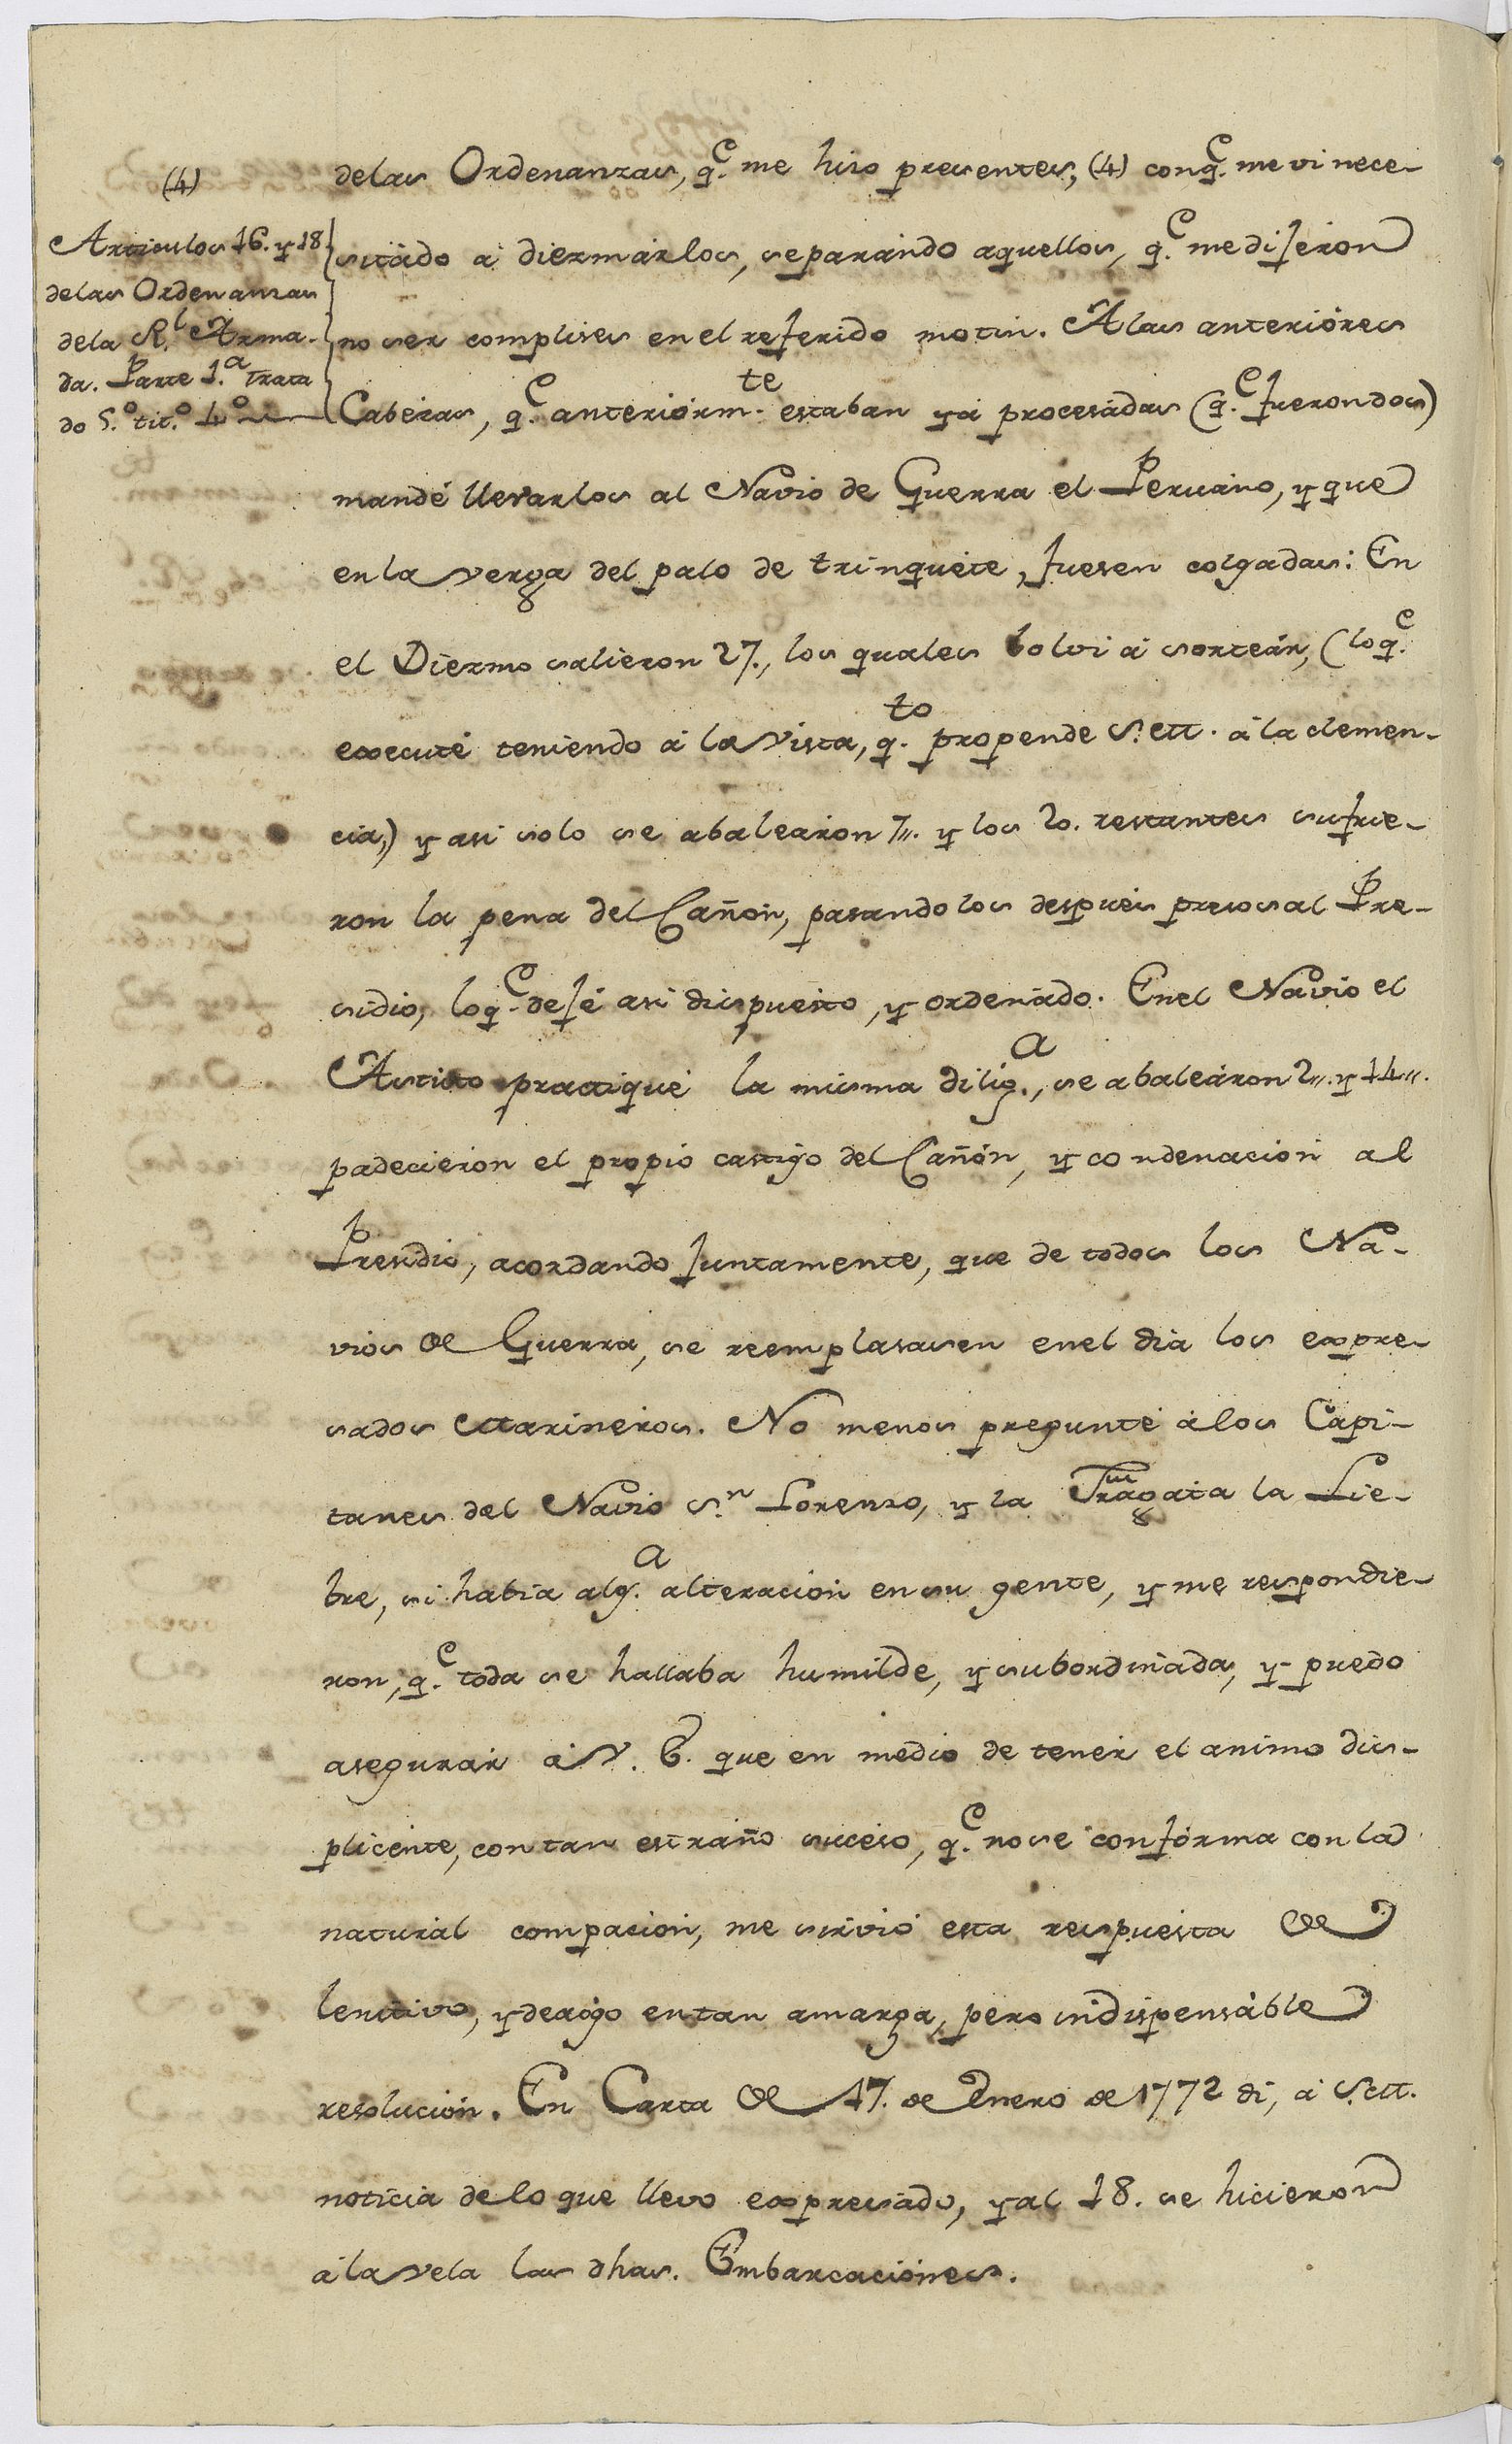 (4)
Articulos 16. y 18
delas Ordenanzas
dela Rl. Arma-
da. Parte 1.a Trata
do 5.o tit.o 4.o
delas Ordenanzas, q.e me hiso presentes, (4) conq.e me vi nece-
sitado á diezmarlos, separando aquellos, q.e medijeron
no ser complises enel referido motin. A las anteriores
Cabezas, q.e anteriorm.te estaban yá procesadas (q.e fuerondos)
mandé llevarlos al Navio de Guerra el Peruano, y que
en la verga del palo de trinquete, fuesen colgadas: En
el Diezmo salieron 27., los quales bolvi á sorteár, (loq.e
executé teniendo á la vista, q.to propende S. M. á la clemen-
cia,) y asi solo se abalearon 7,,. y los 20. restantes sufrie-
ron la pena del Cañon, pasandolos despues presos al Pre-
sidio, loq.e dejé asi dispuesto, y ordenado. Enel Navio el
Astuto practiqué la misma dilig.a, se abaleáron 2,,. y 14,,.
padecieron el propio castigo del Cañón, y condenacion al
Presidio, acordando juntamente, que de todos los Na-
vios de Guerra, se reemplasasen enel dia los expre-
sados Marineros. No menos pregunté á los Capi-
tanes del Navio S.n Lorenzo, y la Fragata la Lie-
bre, si habia alg.a alteracion ensu gente, y me respondie-
ron, q.e toda se hallaba humilde, y subordinada, y puedo
asegurar á V. E. que en medio de tener el animo dis-
plicente, con tan estraño suceso, q.e nose confórma con la
natural compacion, me sirvió esta respuesta de
lenitivo, y deaogo entan amarga, pero indispensable
resolucion. En Carta de 17. de Enero de 1772 di, á S. M.
noticia delo que llevo expresado, y al 18. se hicieron
á la vela las dhas. Embarcaciones.